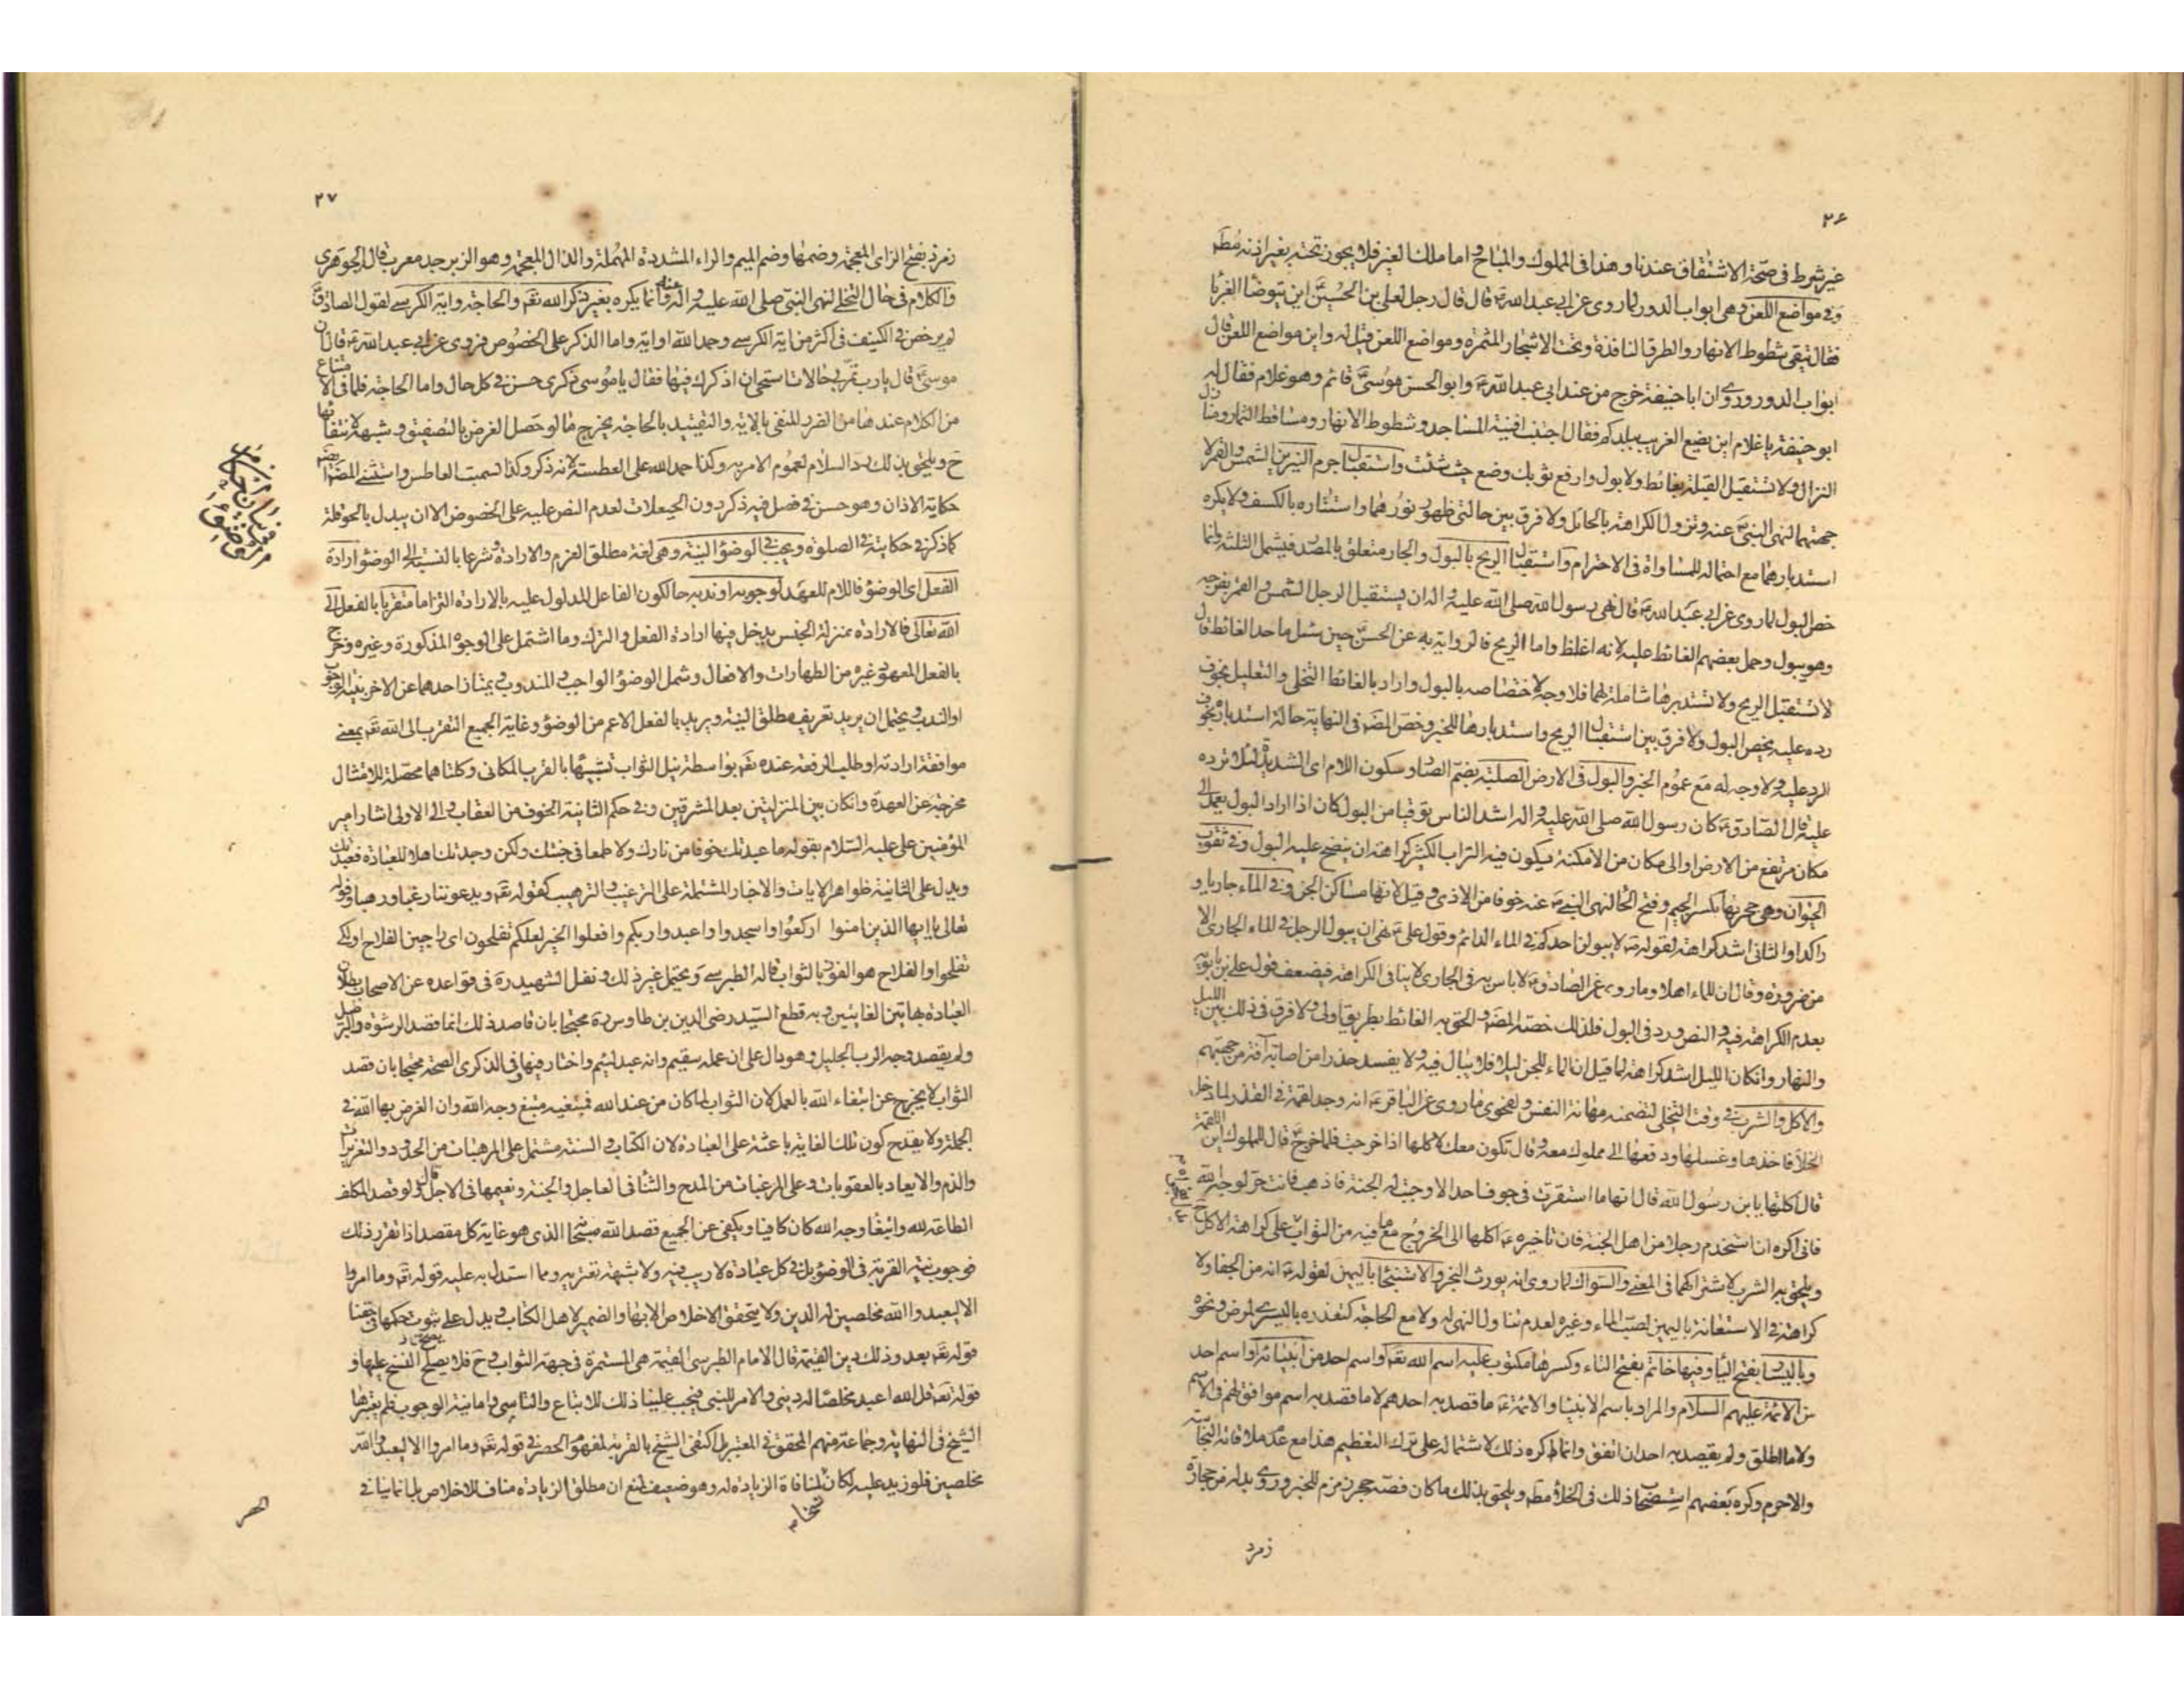 ٢۶
غير شرط في صحة الاشتقاق عندنا وهذا في المملوك والمباح واما ملك الغير فلا يجوز تحته بغير اذنه مطم
وفي مواضع اللعن وهي ابواب الدور لما روي عن ابي عبد الله ع قال قال رجل لعلي بن الحسين ع اين يتوضأ الغربا
فقال يتقى شطوط الانهار والطرق النافذة وتحت الاشجار المثمره ومواضع اللعن قيل له واين مواضع اللعن قال
ابواب الدور وروي ان ابا حنيفة خرج من عند ابي عبد الله ع وابو الحسن موسى ع قائم وهو غلام فقال له
ابو حنيفة يا غلام اين يضع الغريب ببلدكم فقال اجتنب افنية المساجد وشطوط الانهار ومساقط الثمار ومنازل
النزال ولا تستقبل القبلة بغائط ولا بول وارفع ثوبك وضع حيث شئت واستقبال جرم النيرين الشمس والقمر لا
جهتهما لنهى النبي ص عنه وتزول الكراهة بالحائل ولا فرق بين حالتي ظهور نورهما واستتاره بالكسف ولا يكره
استدبارهما مع احتماله للمساواة في الاحترام واستقبال الريح بالبول والجار متعلق بالمصدر فيشمل الثلثة وانما
خص البول لما روي عن ابي عبد الله ع قال نهى رسول الله صلى الله عليه واله ان يستقبل الرجل الشمس والقمر بفرجه
وهو يبول وحمل بعضهم الغائط عليه لانه اغلظ واما الريح فالرواية به عن الحسن ع حين سئل ما حد الغائط قال
لا تستقبل الريح ولا تستدبرها شاملة لهما فلا وجه لاختصاصه بالبول واراد بالغائط التخلى والتعليل بخوف
رده عليه يخص البول ولا فرق بين استقبال الريح واستدبارها للخبر وخص المصنف في النهاية حالة استدباره بخوف
الرد عليه ولا وجه له مع عموم الخبر والبول في الارض الصلبة بضم الصاد وسكون اللام اي الشديدة لئلا ترده
عليه قال الصادق ع كان رسول الله صلى الله عليه واله اشد الناس توقيا من البول كان اذا اراد البول يعمد الى
مكان مرتفع من الارض او الى مكان من الامكنة يكون فيه التراب الكثير كراهة ان ينضح عليه البول وفي ثقوب
الحيوان وهي جحرتها بكسر الجيم وفتح الحا لنهى النبي ص عنه خوفا من الاذى وقيل لانها مساكن الجن وفي الماء جاريا و
راكدا والثاني اشد كراهة لقوله ص لا يبولن احدكم في الماء الدائم وقول علي ع نهى ان يبول الرجل في الماء الجاري الا
من ضرورة وقال ان للماء اهلا وما روي عن الصادق ع لا باس به في الجاري لا ينافي الكراهة فيضعف قول علي بن بابويه
بعدم الكراهة فيه والنص ورد في البول فلذلك خصه المصنف والحق به الغائط بطريق اولى ولا فرق في ذلك بين الليل
والنهار وان كان الليل اشد كراهة لما قيل ان الماء للجن ليلا فلا يبال فيه ولا يفسد حذرا من اصابة آفة من جهتهم
والاكل والشرب في وقت التخلى لتضمنه مهانة النفس ولفحوى ما روي عن الباقر ع انه وجد لقمة في القذر لما دخل
الخلا فاخذها وغسلها ودفعها الى مملوك معه وقال تكون معك لاكلها اذا خرجت فلما خرج ع قال للمملوك اين اللقمة
قال اكلتها يا بن رسول الله قال انها ما استقرت في جوف احد الا وجبت له الجنة فاذهب فانت حر لوجه الله
فاني اكره ان استخدم رجلا من اهل الجنة فان تاخيره ع اكلها الى الخروج مع ما فيه من الثواب على كراهة الاكل ح
ويلحق به الشرب لاشتراكهما في المعنى والسواك لما روي انه يورث البخر والاستنجا باليمين لقوله ص انه من الجفا ولا
كراهة في الاستعانة باليمين لصب الماء وغيره لعدم تناول النهى له ولا مع الحاجة كتعذره باليسرى لمرض ونحوه
وباليسار بفتح اليا وفيها خاتم بفتح التاء وكسرها مكتوب عليه اسم الله تعم او اسم احد من انبيائه او اسم احد
من الائمة عليهم السلام والمراد باسم الانبيا والائمة ع ما قصد به احدهم لا ما قصد به اسم موافق لهم في الاسم
ولا ما اطلق ولم يقصد به احد ان اتفق وانما كره ذلك لاشتماله على ترك التعظيم هذا مع عدم ملاقاته النجاسة
والا حرم وكره بعضهم استصحاب ذلك في الخلاء مطم ويلحق بذلك ما كان فصه حجر زمزم للخبر وروي بدله من حجارة
زمرد
٢٧
زمرد بفتح الزاي المعجمه وضمها وضم الميم والراء المشددة المهملة والذال المعجمه وهو الزبرجد معرب قال الجوهري
والكلام في حال التخلى لنهى النبي صلى الله عليه واله عنه وانما يكره بغير ذكر الله تعم والحاجة واية الكرسي لقول الصادق ع
لم يرخص في الكنيف في اكثر من اية الكرسي وحمد الله او اية واما الذكر على الخصوص فروي عن ابي عبد الله ع قال ان
موسى ع قال يا رب تمر بي حالات استحيي ان اذكرك فيها فقال يا موسى ذكري حسن في كل حال واما الحاجة فلما في الامتناع
من الكلام عندها من الضرر المنفي بالاية والتقييد بالحاجة يخرج ما لو حصل الغرض بالتصفيق وشبهه لانتفائها
ح ويلحق بذلك رد السلام لعموم الامر به وكذا حمد الله على العطسة لانه ذكر وكذا تسميت العاطس واستثنى المصنف ايضا
حكاية الاذان وهو حسن في فصل فيه ذكر دون الحيعلات لعدم النص عليه على الخصوص الا ان يبدل بالحوقلة
كما ذكر في حكايته في الصلوة ويجب في الوضؤ النية وهي لغة مطلق العزم والارادة وشرعا بالنسبة الى الوضؤ ارادة
الفعل اي الوضؤ فاللام للعهد لوجوبه او ندبه حالكون الفاعل المدلول عليه بالارادة التزاما متقربا بالفعل الى
الله تعالى فالارادة بمنزلة الجنس يدخل فيها ارادة الفعل والترك وما اشتمل على الوجوه المذكورة وغيره وخرج
بالفعل المعهود غيره من الطهارات والافعال وشمل الوضؤ الواجب والمندوب ويمتاز احدهما عن الاخر بنية الوجوب
او الندب ويحتمل ان يريد تعريف مطلق النية ويريد بالفعل الاعم من الوضؤ وغاية الجميع التقرب الى الله تعم بمعنى
موافقة ارادته او طلب الرفعة عنده تعم بواسطة نيل الثواب تشبيها بالقرب المكاني وكلتاهما محصلة للامتثال
مخرجة عن العهدة وان كان بين المنزلتين بعد المشرقين وفي حكم الثانية الخوف من العقاب والى الاولى اشار امير
المؤمنين علي عليه السلام بقوله ما عبدتك خوفا من نارك ولا طمعا في جنتك ولكن وجدتك اهلا للعبادة فعبدتك
ويدل على الثانية ظواهر الايات والاخبار المشتملة على الترغيب والترهيب كقوله تعم ويدعوننا رغبا ورهبا وقوله
تعالى يا ايها الذين امنوا اركعوا واسجدوا واعبدوا ربكم وافعلوا الخير لعلكم تفلحون اي راجين الفلاح او لكي
تفلحوا والفلاح هو الفوز بالثواب قاله الطبرسي ويحتمل غير ذلك ونقل الشهيد ره في قواعده عن الاصحاب بطلان
العبادة بهاتين الغايتين وبه قطع السيد رضي الدين بن طاوس ره محتجا بان قاصد ذلك انما قصد الرشوة والبرطيل
ولم يقصد وجه الرب الجليل وهو دال على ان عمله سقيم وانه عبد لئيم واختار فيها وفي الذكرى الصحة محتجا بان قصد
الثواب لا يخرج عن ابتغاء الله بالعمل لان الثواب لما كان من عند الله فمبتغيه مبتغ وجه الله وان الغرض بها الله في
الجملة ولا يقدح كون تلك الغاية باعثة على العبادة لان الكتاب والسنة مشتمل على المرهبات من الحدود والتعزيرات
والذم والايعاد بالعقوبات وعلى المرغبات من المدح والثنا في العاجل والجنة ونعيمها في الاجل قال ولو قصد المكلف
الطاعة لله وابتغا وجه الله كان كافيا ويكفي عن الجميع قصد الله سبحانه الذي هو غاية كل مقصد اذا تقرر ذلك
فوجوب نية القربة في الوضؤ بل في كل عبادة لا ريب فيه ولا شبهة تعتريه ومما استدل به عليه قوله تعم وما امروا
الا ليعبدوا الله مخلصين له الدين ولا يتحقق الاخلاص الا بها والضمير لاهل الكتاب ويدل على ثبوت حكمها في حقنا
قوله تعم بعد وذلك دين القيمة قال الامام الطبرسي القيمة هي المستمرة في جهة الثواب وح فلا يصلح النسخ عليها و
قوله تعم قل الله اعبد مخلصا له ديني والامر للنبي فيجب علينا ذلك للاتباع والتاسي واما نية الوجوب فلم يعتبرها
الشيخ في النهاية وجماعة منهم المحقق في المعتبر بل اكتفى الشيخ بالقربة لمفهوم الحصر في قوله تعم وما امروا الا ليعبدوا الله
مخلصين فلو زيد عليه لكان نسخا لمنافاة الزيادة له وهو ضعيف لمنع ان مطلق الزيادة مناف للاخلاص بل انما ينافي